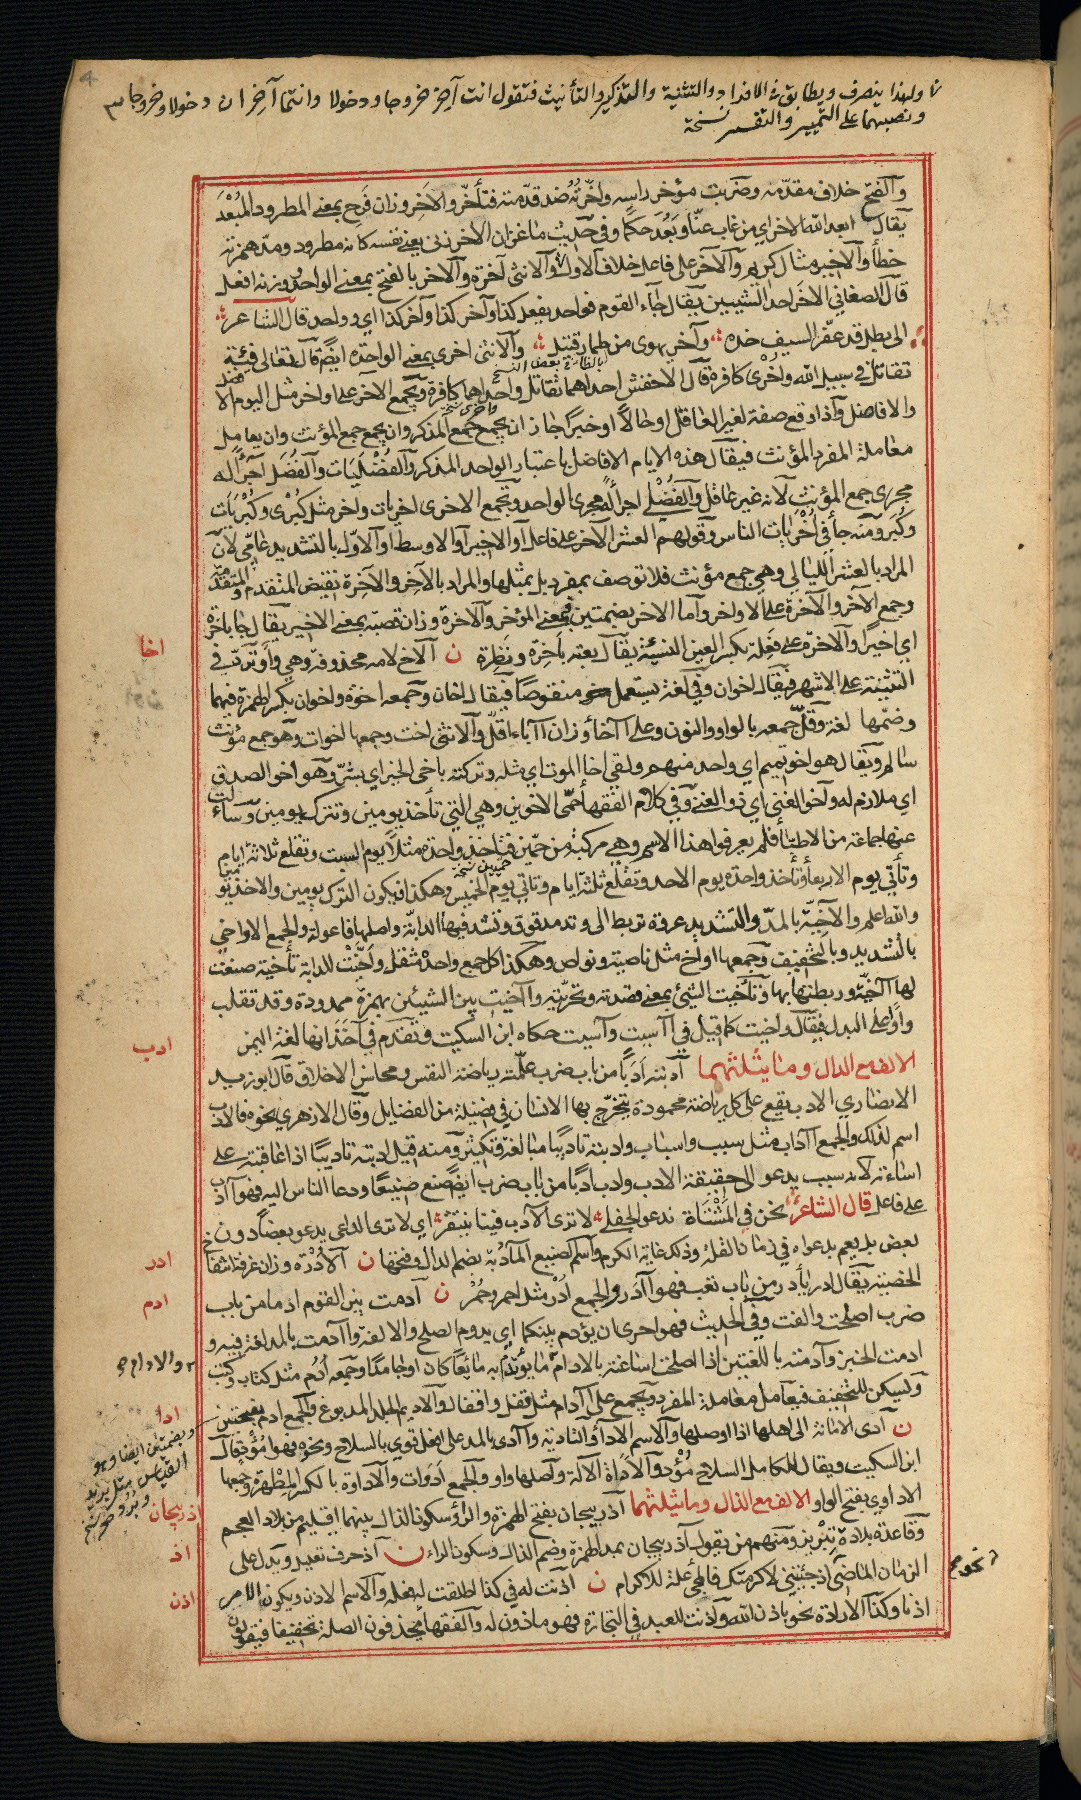 ولهذا يتصرف ويطابق في الافراد والتثنية والتذكير والتأنيث فتقول انت آخر خروجا ودخولا وانتما آخران دخولا وخروجا
ونصبهما على التمييز والتفسير نسخة
والفتح خلاف مقدّمه وضربت مؤخر راسه واخّرته ضد قدّمته فتأخّر والاخِر وزان فَرِح بمعنى المطرود المُبْعَد
يقال ابعد الله الاخر اي من غاب عنّا وبَعُدَ حكما وفي حديث ماعز ان الاخر زنى يعني نفسه كانه مطرود ومدّ همزته
خطأ والاخير مثال كريم والآخر على فاعل خلاف الاول والانثى آخرة والآخر بالفتح بمعنى الواحد وزنه افعل
قال الصغاني الآخَر احد الشيئين يقال جاء القوم فواحد يفعل كذا وآخر كذا وآخر كذا اي وواحد قال الشاعر
الى بطل قد عقّر السيف خده وآخر يهوى من طمار قتيل والانثى اخرى بمعنى الواحدة ايضا قال تعالى فئة
تقاتل في سبيل الله واخرى كافرة قال الاخفش احداهما تقاتل واحداهما كافرة ويجمع الآخر على اواخر مثل اليوم الافضل
والافاضل واذا وقع صفة لغير العاقل او حالا او خبرا جاز ان يجمع جمع المذكر وان يجمع جمع المؤنث وان يعامل
معاملة المفرد المؤنث فيقال هذه الايام الافاضل باعتبار الواحد المذكر والفُضْلَيَات والفُضَل اجراء له
مجرى جمع المؤنث لانه غير عاقل والفُضْلى اجراء له مجرى الواحد وتجمع الاخرى اخريات واخر مثل كبرى وكبريات
وكُبَر ومنه جأ في اخريات الناس وقولهم العشر الآخر على فاعل او الاخير او الاوسط او الاول بالتشديد عامّي لان
المراد بالعشر الليالي وهي جمع مؤنث فلا توصف بمفرد بل بمثلها والمراد بالآخر والآخرة نقيض المتقدم والمتقدمة
وجمع الآخر والآخرة على الاواخر واما الاخر بضمتين فبمعنى المؤخر والاخَرة وزان قصبة بمعنى الاخير يقال جا باخرة
اي اخيرا والاخِرة على فَعِلة بكسر العين النسيئة يقال بعته باخِرة ونَظِرة ن الاخ لامه محذوفة وهي واو وتردّ في
التثنية على الاشهر فيقال اخوان وفي لغة يستعمل منقوصا فيقال اخان وجمعه اخوة واخوان بكسر الهمزة فيهما
وضمها لغة وقلّ جمعه بالواو والنون وعلى آخاء وزان آباء اقلّ والانثى اخت وجمعها اخوات وهو جمع مؤنث
سالم ويقال هو اخو تميم اي واحد منهم ولقي اخا الموت اي مثله وتركته باخي الخير اي بشرّ وهو اخو الصدق
اي ملازم له واخو الغنى اي ذو الغنى وفي كلام الفقهاء حمّى الاخوين وهي التي تأخذ يومين وتترك يومين وسألت
عنها جماعة من الاطباء فلم يعرفوا هذا الاسم وهي مركبة من حمّيين فتاخذ واحدة مثلا يوم السبت وتقلع ثلاثة ايام
وتأتي يوم الاربعاء وتأخذ واحدة يوم الاحد وتقلع ثلثة ايام وتاتي يوم الخميس وهكذا فيكون الترك يومين والاخذ يومين
والله اعلم والآخيّة بالمدّ والتشديد عروة تربط الى وتد مدقوق وتشد فيها الدابة واصلها فاعولة والجمع الاواخي
بالتشديد وبالتخفيف وجمعها اواخ مثل ناصية ونواص وهكذا كل جمع واحده مثقل واخّيت للدابة تأخية صنعت
لها آخيّة وربطتها بها وتأخّيت الشيء بمعنى قصدته وتحرّيته وآخيت بين الشيئين بهمزة ممدودة وقد تقلب
واوا على البدل فيقال واخيت كما قيل في آسيت وآسيت حكاه ابن السكيت وتقدم في اخذ انها لغة اليمن
الالف مع الدال وما يثلثهما أدبته ادبا من باب ضرب علّمته رياضة النفس ومحاسن الاخلاق قال ابو زيد
الانصاري الادب يقع على كل رياضة محمودة يتخرّج بها الانسان في فضيلة من الفضايل وقال الازهري نحوه فالادب
اسم لذلك والجمع آداب مثل سبب واسباب وادبته تاديبا مبالغة وتكثير ومنه قيل ادبته تاديبا اذا عاقبته على
اساءته لانه سبب يدعو الى حقيقة الادب وادب ادبا من باب ضرب ايضا صنع صنيعا ودعا الناس اليه فهو آدب
على فاعل قال الشاعر نحن في المَشْتَاة ندعو الجفلى لا ترى الآدب فينا ينتقر اي لا ترى الداعي يدعو بعضا دون
بعض بل يعم بدعواه في زمان القلة وذلك غاية الكرم واسم الصنيع المأدُبة بضم الدال وفتحها ن الأُدْرة وزان غرفة انتفاخ
الخصية يقال ادر يأدر من باب تعب فهو آدر والجمع أُدْر مثل احمر وحُمْر ن أدمت بين القوم ادما من باب
ضرب اصلحت والفت وفي الحديث فهو احرى ان يؤدم بينكما اي يدوم الصلح والالفة وآدمت بالمد لغة فيه و
ادمت الخبز وآدمته باللغتين اذا اصلحت اساغته بالادام ما يؤتدم به مائعا كان او جامدا وجمعه أُدُم مثل كتاب وكتب
ويسكن للتخفيف فيعامل معاملة المفرد ويجمع على آدام مثل قفل واقفال والاديم الجلد المدبوغ والجمع ادم بفتحتين
ن أدى الامانة الى اهلها اذا اوصلها والاسم الاداء والتادية وآدى بالمد على افعل قوي بالسلاح ونحوه فهو مُؤْد قال
ابن السكيت ويقال للكامل السلاح مُؤْد والأداة الآلة واصلها واو والجمع ادوات والاداوة بالكسر المِطْهَرة وجمعها
الاداوي بفتح الواو الالف مع الذال وما يثلثهما آذربيجان بفتح الهمزة والراء وسكون الذال بينهما اقليم من بلاد العجم
وقاعدة بلاده تبريز ومنهم من يقول آذربيجان بمد الهمزة وضم الذال وسكون الراء ن اذ حرف تعليل ويدل على
الزمان الماضي اذ جئتني لاكرمتك فالمجيء علة للاكرام ن أذنت له في كذا اطلقت له فعله والاسم الاذن ويكون الامر
اذنا وكذا الارادة نحو باذن الله وأذنت للعبد في التجارة فهو ماذون له والفقهاء يحذفون الصلة تخفيفا فيقولون
اخا
ادب
ادر
ادم
والادام
ادا
وبضمتين ايضا وهو
القياس مثل بريد
وبرد
اذربيجان
اذ
اذن
نحو